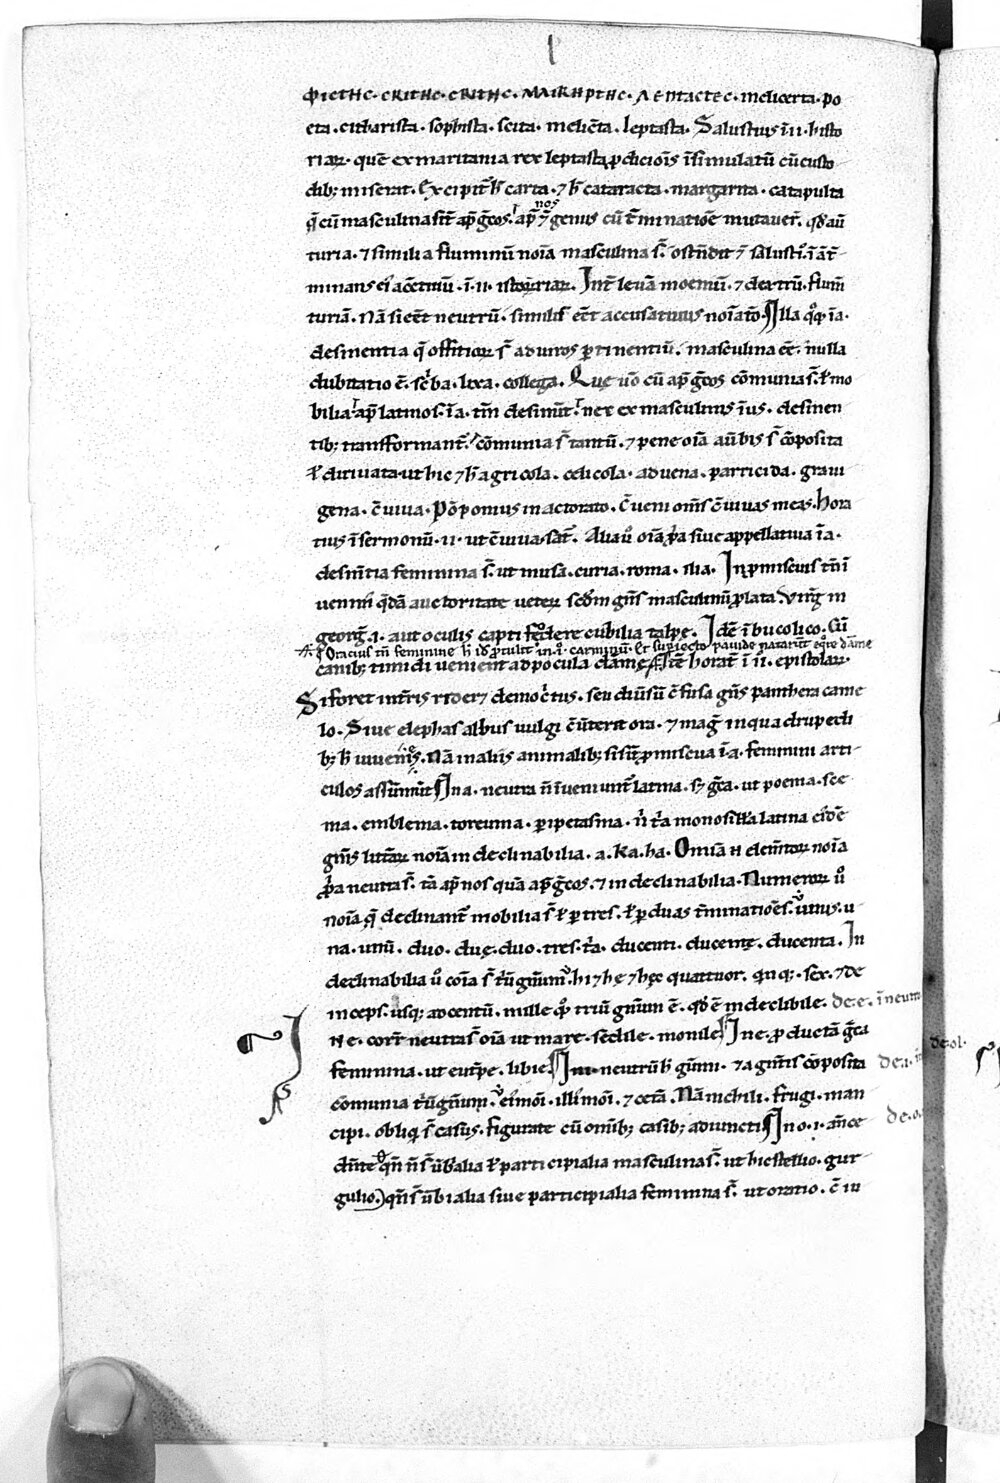 l
ΦΙΕΤΗC · CΚΙΤΗC · CΚΙΤΗC · ΜΛΙΚΗΡΤΗC · ΛΕΠΤΑCΤΕC · melicerta · po
eta · citharista · sophista · scita · meliēta · leptasta · Salustius ī ii · histo
riaꝝ · quē ex maritania rex leptasta ꝓdicionis īsimulatū cū custo
dibꝫ miserat. Excipit̄ h̄ carta · ⁊ h̄ cataracta · margarita · catapulta
q̄ cū masculina sīt ap̄ grecos · ap̄ nos ⁊ genus cū t̄minatiōe mutauer̄ · qđ aū
turia · ⁊ similia fluminū noīa masculina s̄ · ostēdit
minans ei acc̄tiuū · ī · ii · istoriaꝝ. Int̄ leuā moeniū · ⁊ dextrū · flum̄
turiā. Nā si eēt neutrū · similis eēt accusatiuus noīatō · Illa qͦqꝫ ī a ·
desinentia q̄ offitioꝝ s̄ ad uiros ꝑtinentiū · masculina eē · nulla
dubitatio ē · scⁱba · lixa · collega. Que uͦo cū ap̄ grecos cōmunia s̄ · ł mo
bilia ap̄ latinos · ī a · tm̄ desinūt · nec ex masculinis ī us · desinen
tibꝫ transformant̄ · cōmunia s̄ tantū · ⁊ pene oīa aū bis s̄ cōposita
ł diriuata · ut hic ⁊ h̄ agricola · celicola · aduena · parricida · graiu
gena · c̄uiua · Pōponius in actorato · c̄ueni om̄s c̄uiuas meas. Hora
tius ī sermonū · ii · ut c̄uiua sat̄. Alia uͦ oīa ꝓpa siue appellatiua ī a ·
desin̄tia feminina s̄ · ut musa · curia · roma · ilia · In ꝓmiscuis tn̄ ī
uenim̄ q̄dā auctoritate ueteꝝ scđm gn̄s masculinū ꝓlata. Virḡ in
georḡ · i · aut oculis capti foꝺere cubilia talpę. Idē ī bucolico. Cū
Oracius tn̄ feminine h̄ id ꝓtulit in · i · carminū · Et supiecto pauide natarūt eqͦre dāme
canibꝫ timidi uenient ad pocula dāmę · Itē horat̄ ī ii · epistolaꝝ ·
Si foret in t̄ris rideret democⁱtus · seu diūsū c̄fusa gn̄s panthera came
lo · Siue elephas albus uulgi c̄uterit ora · ⁊ maḡ in quadrupedi
bꝫ h̄ inuenies. Nā in aliis animalibꝫ si sūt ꝓmiscua ī a · feminini arti
culos assūmūt In a · neutra n̄ īueniunt̄ latina · sꝫ gr̄ca · ut poema · sce
ma · emblema · toreuma · ꝑipetasma · n̄ t̄a monosilla latina eiđē
gn̄is litt̄aꝝ noīa indeclinabilia · a · ka · ha · Omīa n̄ elem̄toꝝ noīa
ꝓpa neutra s̄ · tā ap̄ nos quā ap̄ gr̄cos · ⁊ indeclinabilia · Numeroꝝ uͦ
noīa q̄ declinant̄ mobilia s̄ ł ꝑ tres · ł ꝑ duas t̄minatiōes · ut unus · u
na · unū · duo · duę · duo · tres · t̄a · ducenti · ducentę · ducenta · In
declinabilia uͦ cōia s̄ t̄ū gn̄um · hi ⁊ hę ⁊ hęc quattuor · qⁱnqꝫ · sex · ⁊ de
inceps · usqꝫ ad centū · mille qͦ triū gn̄um ē · qđ ē indeclibile · de · e · ī neutris
N e · corr̄ neutra s̄ oīa ut mare · sedile · monile In e · ꝓducta gr̄ca
feminina · ut eut̄pe · libie · In · neutrū h̄ gūmi · ⁊ a gn̄tis cōposita
cōmunia t̄ū gn̄um · ut eiˢmōi · illiˢmōi · ⁊ cetā · Nā nichili · frugi · man
cipi · obliqⁱ s̄ casus · figurate cū omībꝫ casibꝫ adiuncti In o · i · an̄ce
dn̄te qn̄ n̄ s̄ ūbalia ł participialia masculina s̄ · ut hic stellio · gur
gulio · qn̄ s̄ ūbialia siue participialia feminina s̄ · ut oratio · c̄ iu
de · ol ·
de · i ·
de · o ·